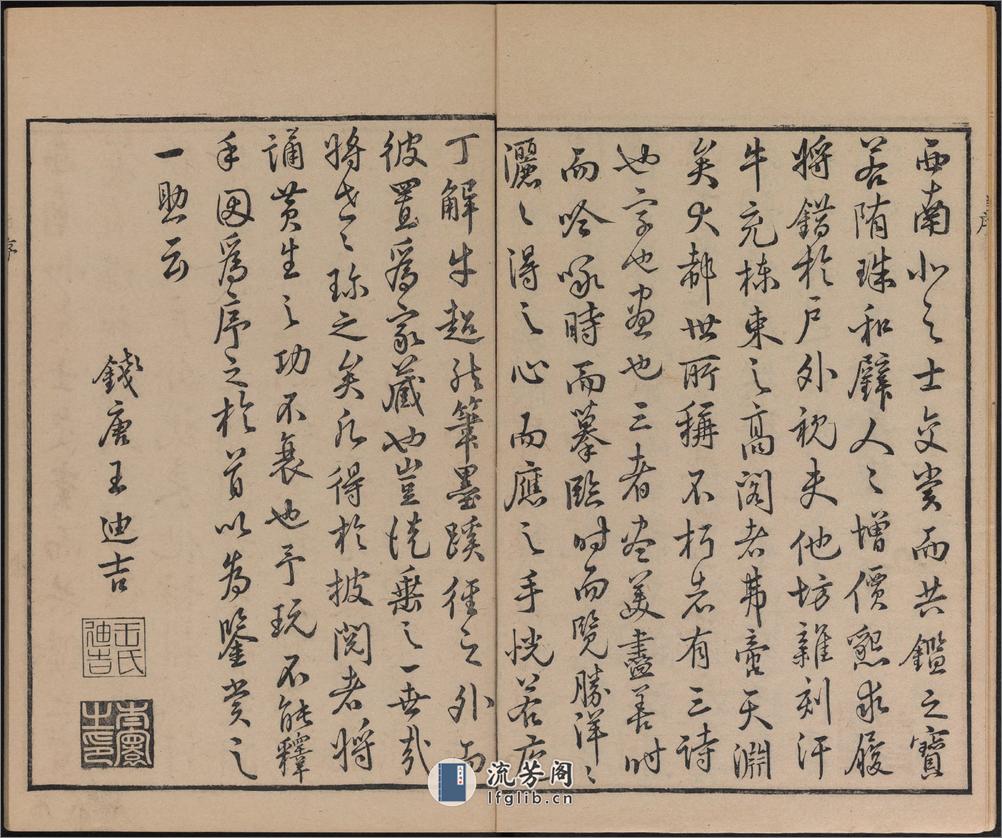 西南北之士交賞而共鑑之寶
若隋珠和璧人〻增價懇求履
將錯於戶外視夫他坊雜刻汗
牛充棟束之高閣者弗啻天淵
矣大都世所稱不朽者有三詩
也字也畫也三者盡美盡善時
而吟咏時而摹臨時而覽勝洋〻
灑〻得之心而應之手恍若庖
丁解牛超於筆墨蹊徑之外而
彼置爲家藏也豈徒垂之一世哉
將世〻珍之矣凡得於披閱者將
誦黃生之功不衰也予玩不能釋
手因爲序之於首以為鑒賞之
一助云
錢唐王迪吉
王氏迪吉
流芳阁
lfglib.cn
序